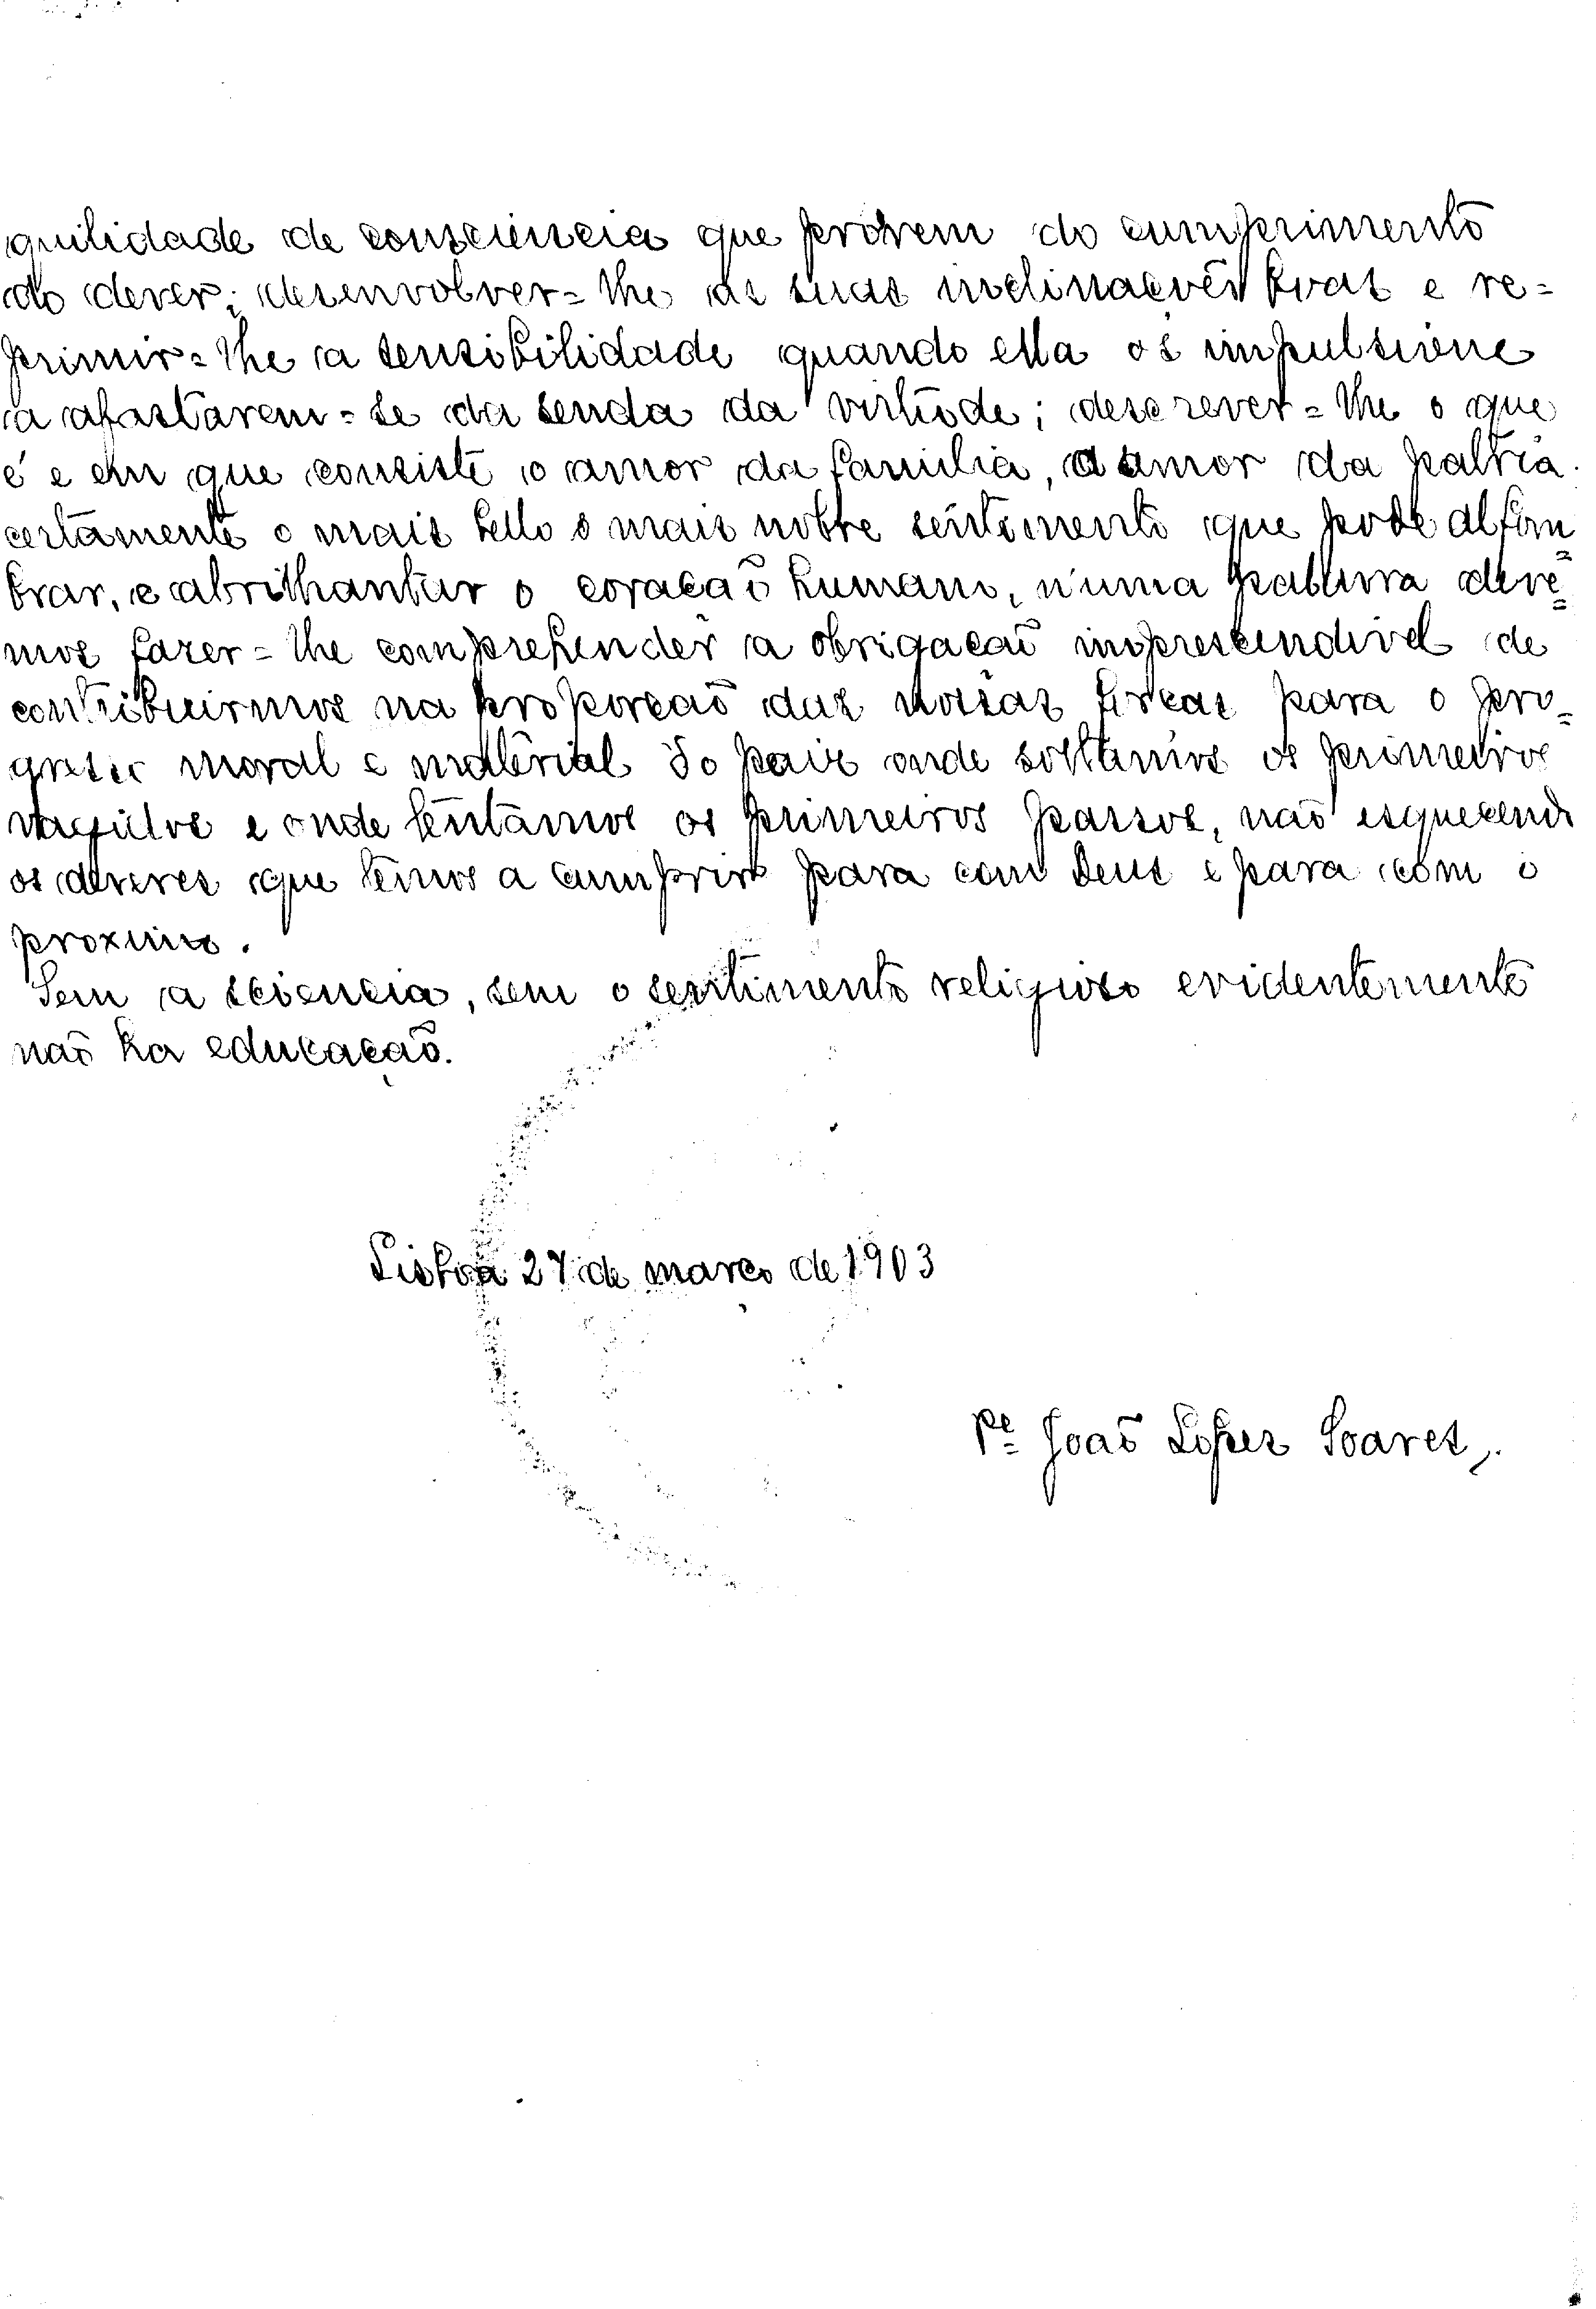 quilidade de consciencia que provem do cumprimento
do dever; desenvolver=lhe as suas inclinações boas e re=
primir=lhe a sensibilidade quando ella os impulsione
a afastarem=se da senda da virtude; descrever=lhe o que
é e em que consiste o amor da familia, o amor da patria
certamente o mais bello o mais nobre sentimento que pode alfom
brar, e abrilhantar o coração humano, n'uma palavra deve=
mos fazer=lhe comprehender a obrigação imprescendivel de
contribuirmos na proporção das nossas forças para o pro=
gresso moral e material do paiz onde soltamos os primeiros
vagidos e onde tentámos os primeiros passos, não esquecendo
os deveres que temos a cumprir para com Deus e para com o
proximo.
Sem a sciencia, sem o sentimento religioso evidentemente
não ha educação.
Lisboa 27 de março de 1903
Pe João Lopes Soares,.